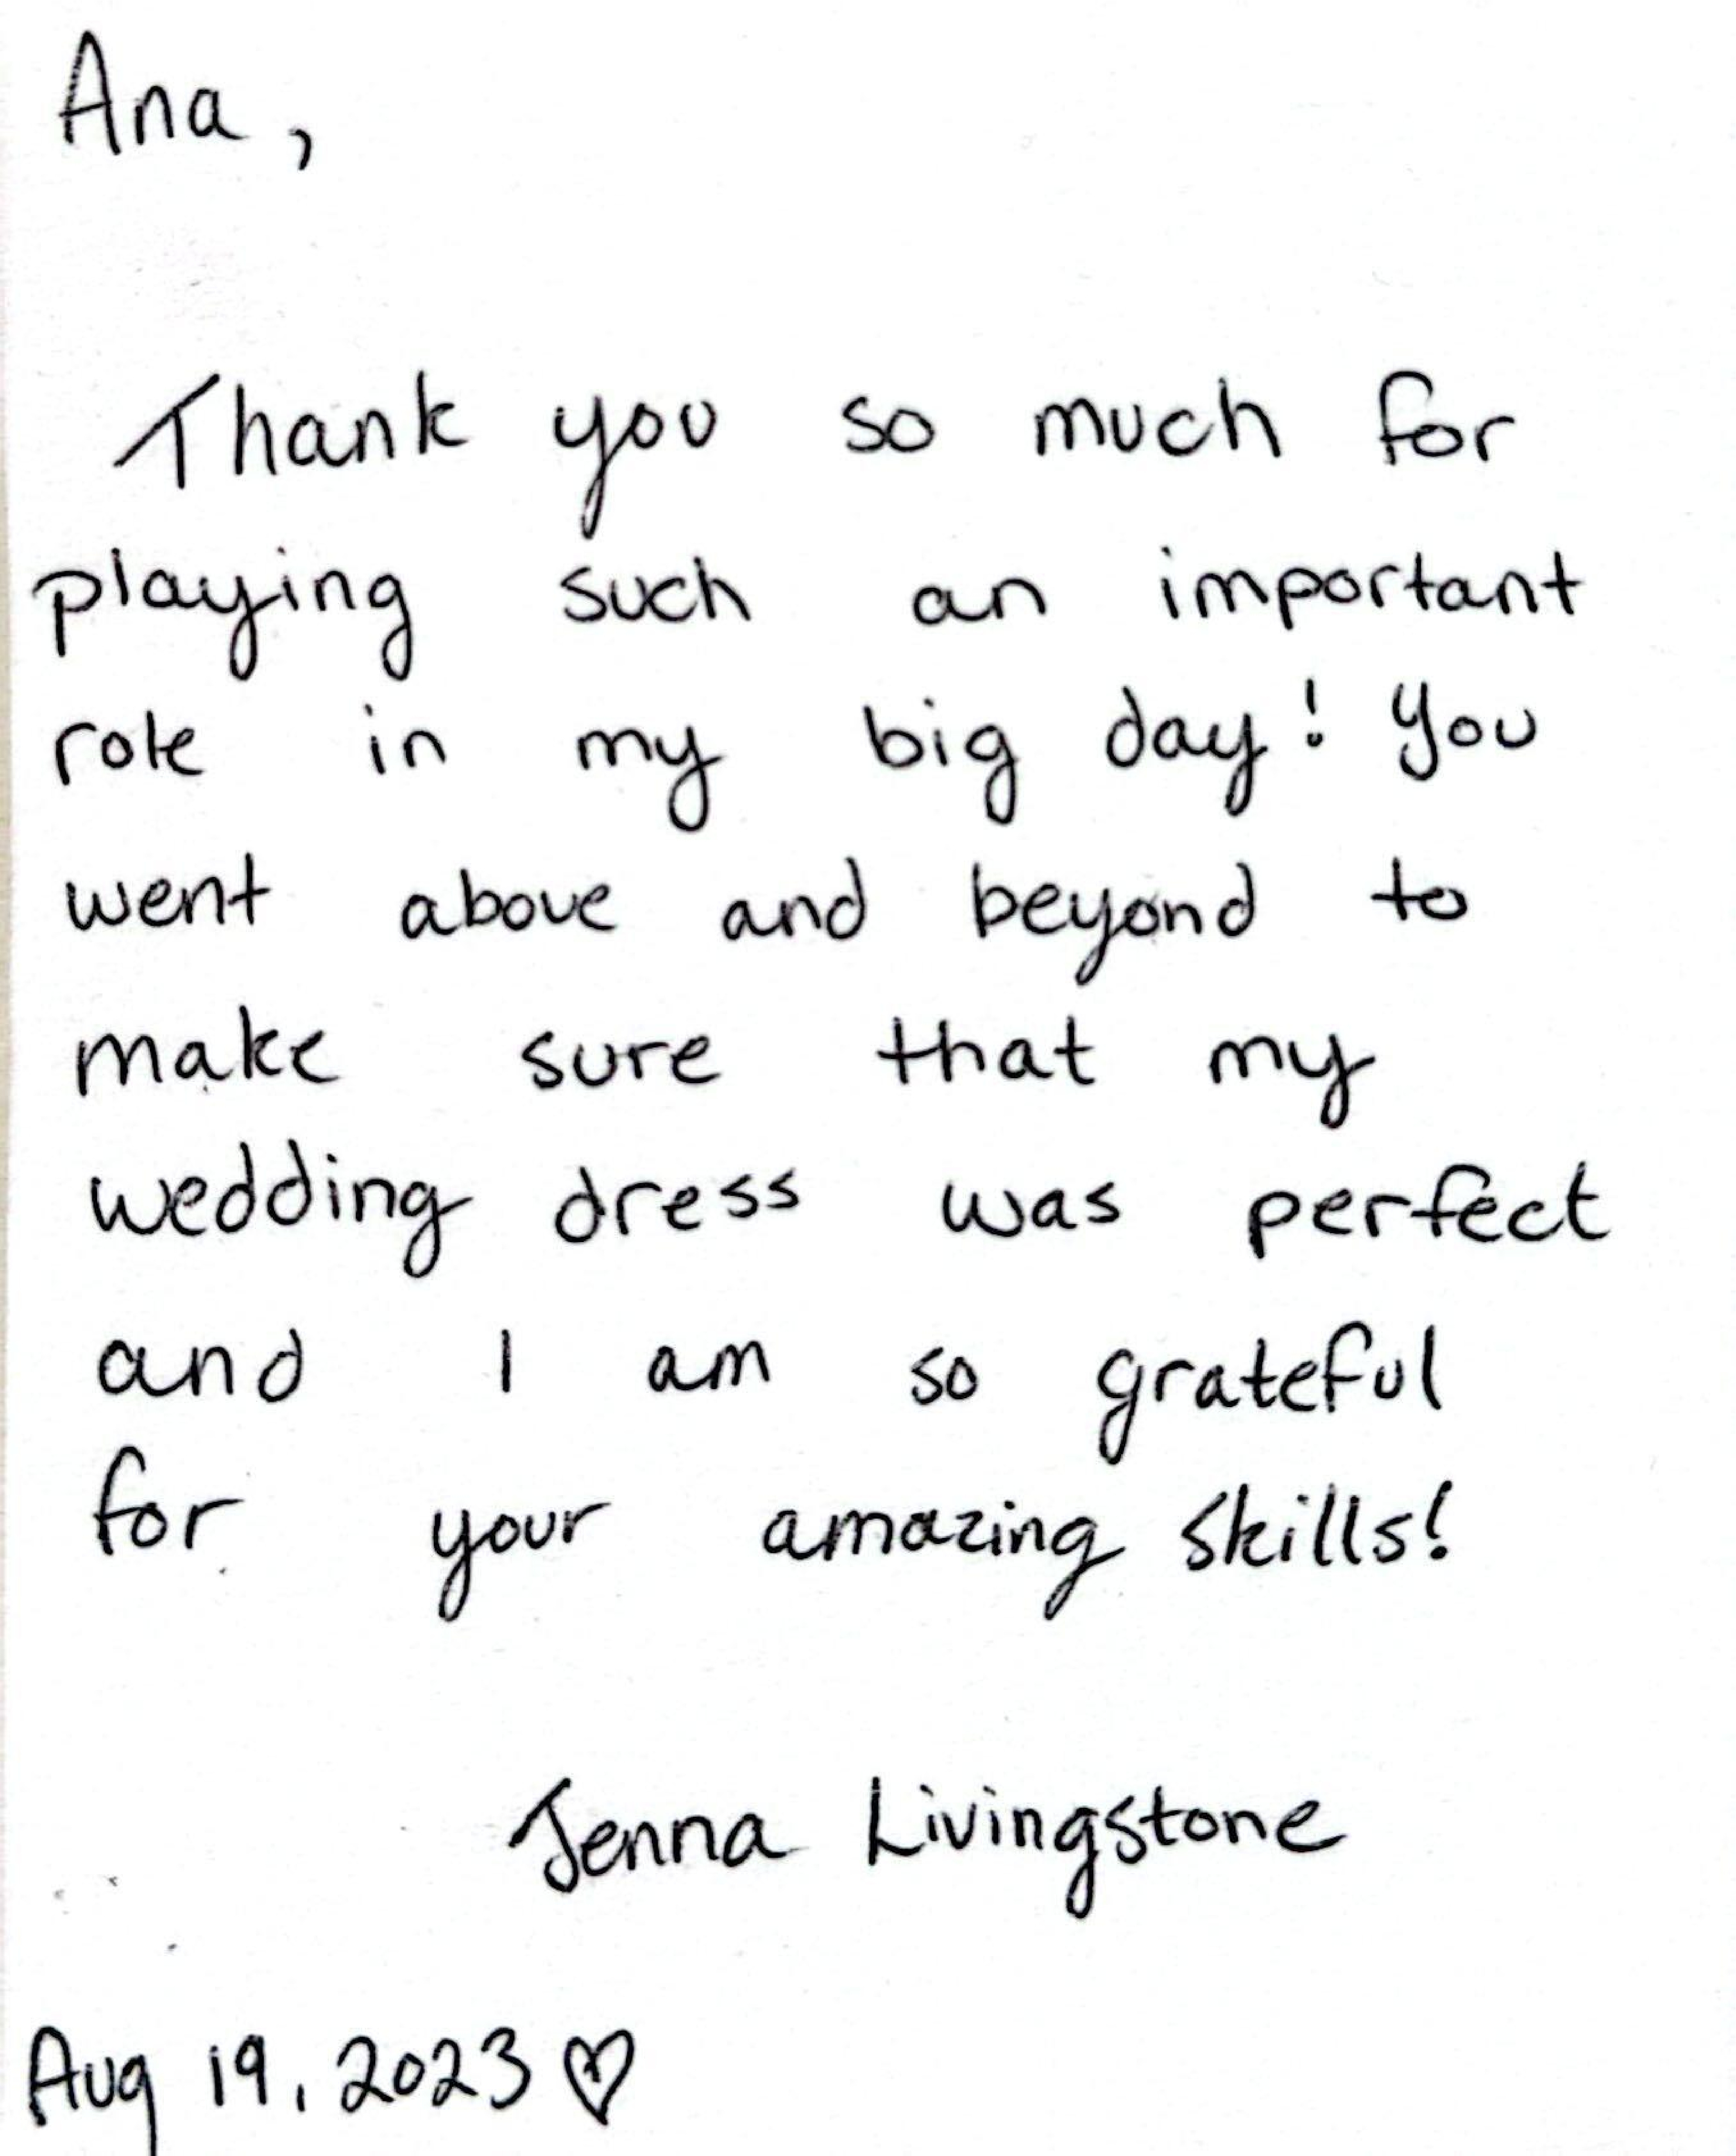 Ana,
Thank you so much for
playing such an important
role in my big day! You
went above and beyond to
make sure that my
wedding dress was perfect
and I am so grateful
for your amazing skills!
Jenna Livingstone
Aug 19, 2023 ♡